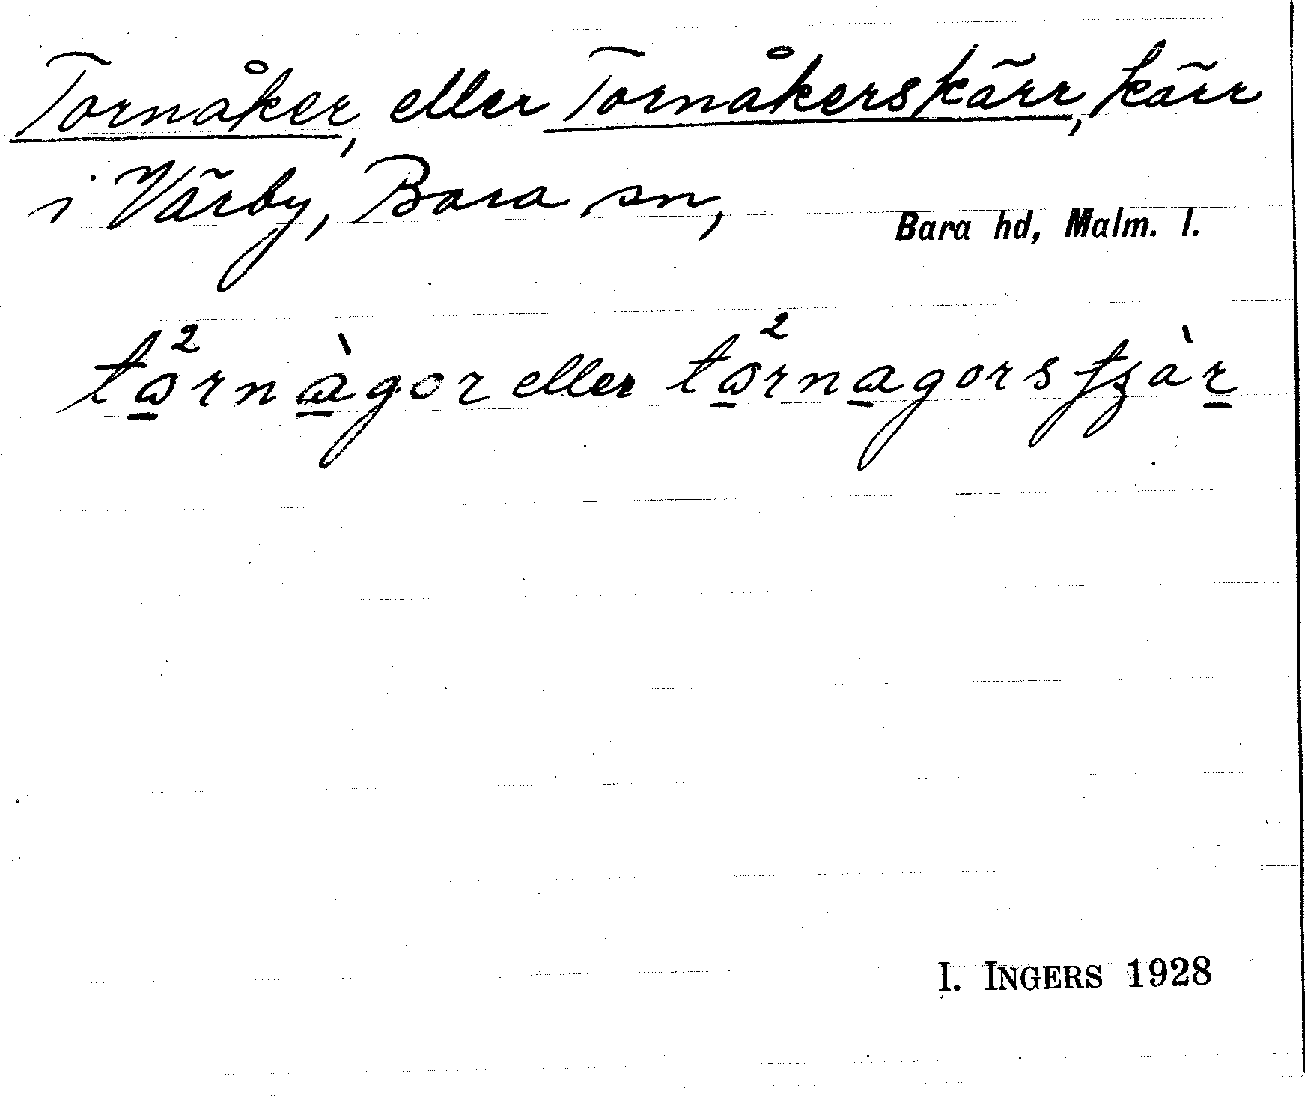 Tornåker, eller Tornåkerskärr, kärr
i Värby, Bara sn, Bara hd, Malm. l.
tɷ²rnàgor eller tɷ²rnagorsʃʒàr
I. INGERS 1928